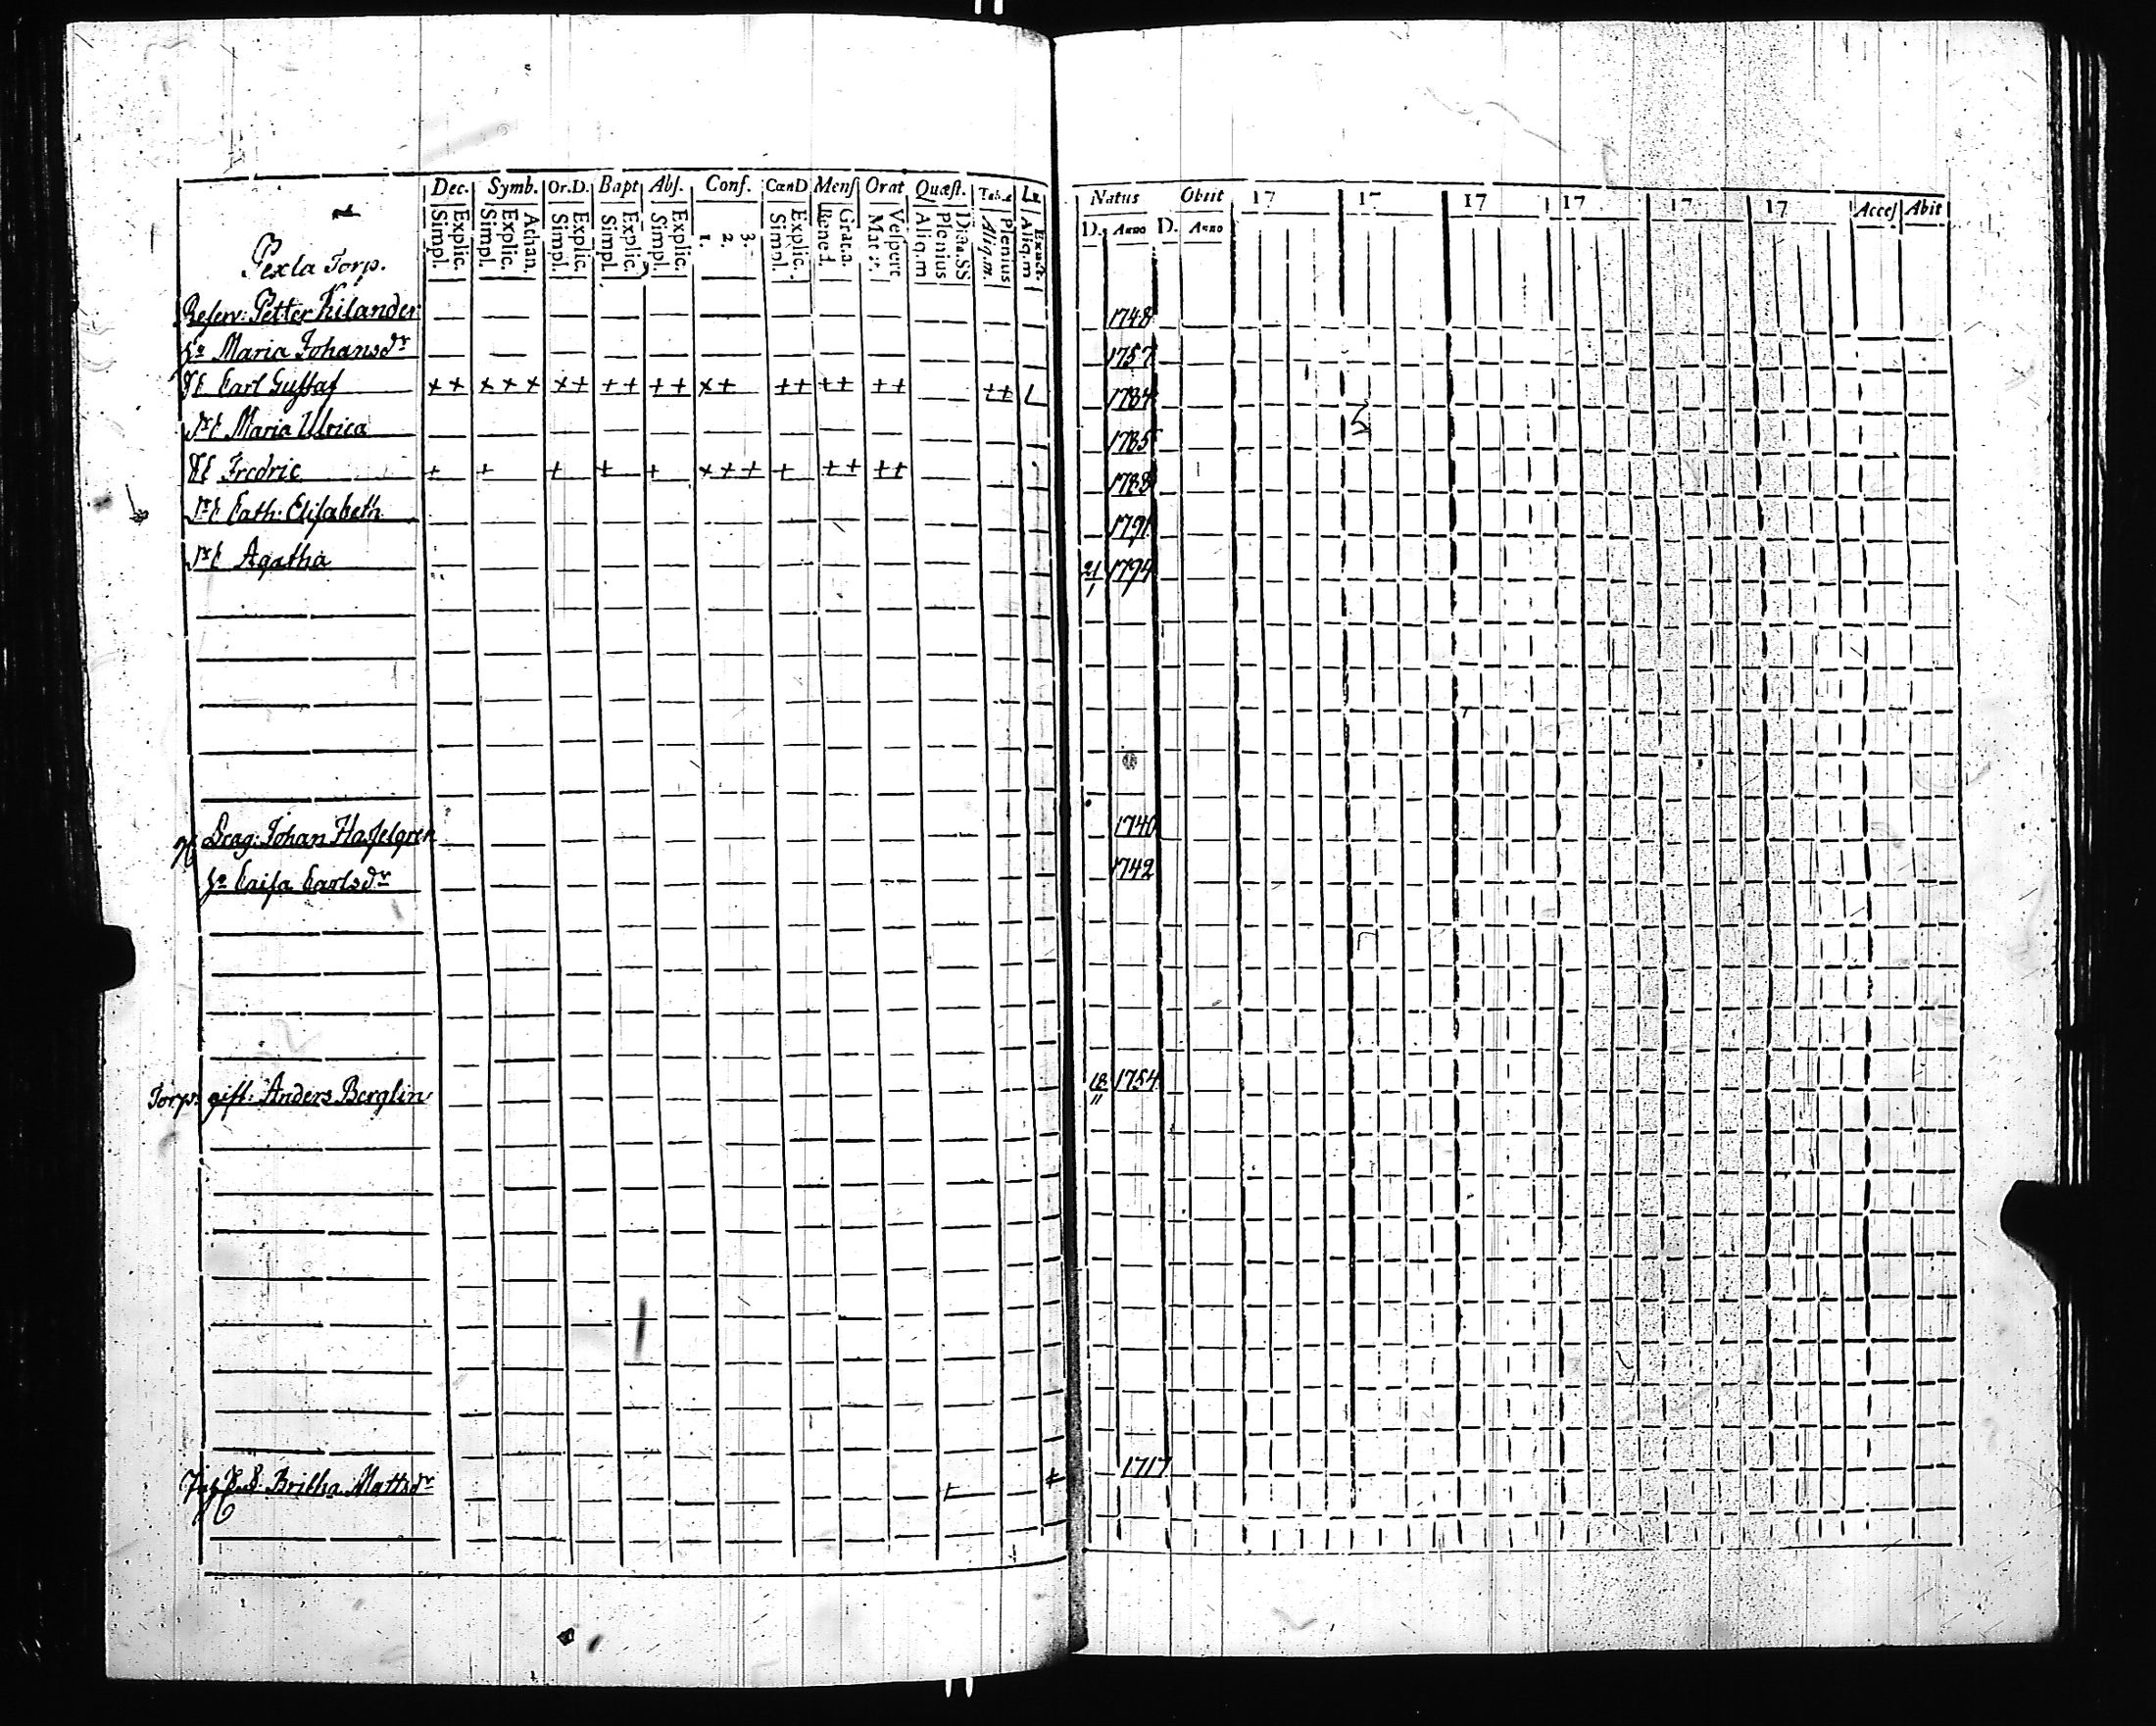 Dec. Symb. Or.D. Bapt Abſ. Conf. CœnD Menſ Orat Quæſt. L
Simpl. Explic. Simpl. Explic. Athan. Simpl. Explic. Simpl. Explic. Simpl. Explic. 1. 2. 3. Simpl. Explic. Bened. Grat.a. Veſpere Aliq.m Plenius Aliq.m. Plenius Aliq.m
Natus Obiit 17 17 17 17 17 17 Acceſ Abit
D. Anno D. Anno
Pexla Torp.
Reserv: Petter Kilander 1748
Maria Johansdr 1757
Carl Gustaf ++ +++ ++ ++ ++ ++ ++ ++ ++ ++ L 1784
Maria Ulrica 1785
Fredric + + + + + +++ + ++ ++ 1788
Cath: Elisabeth 1791
Agatha 21/1 1794
Drag: Johan Hasselgren 1740
Caisa Carlsdr 1742
Torp: gift: Anders Berglin 18/11 1754
Britha Mattsdr + + 1717